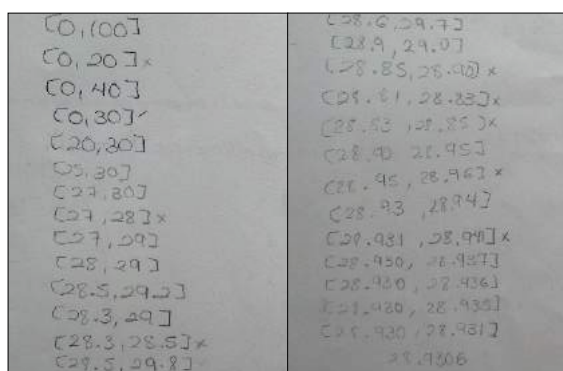 [0,100]
[0,20]×
[0,40]
[0,30]✓
[20,30]
[25,30]
[27,30]
[27,28]×
[27,29]
[28,29]
[28.5,29.2]
[28.3,29]
[28.3,28.5]×
[28.5,29.8]
[28.6,29.7]
[28.9,29.0]
[28.85,28.90]×
[28.81,28.83]×
[28.83,28.85]×
[28.90 28.95]
[28.95,28.96]×
[28.93,28.94]
[28.931,28.940]×
[28.930,28.937]
[28.930,28.936]
[28.930,28.935]
[28.930,28.931]
28.9306